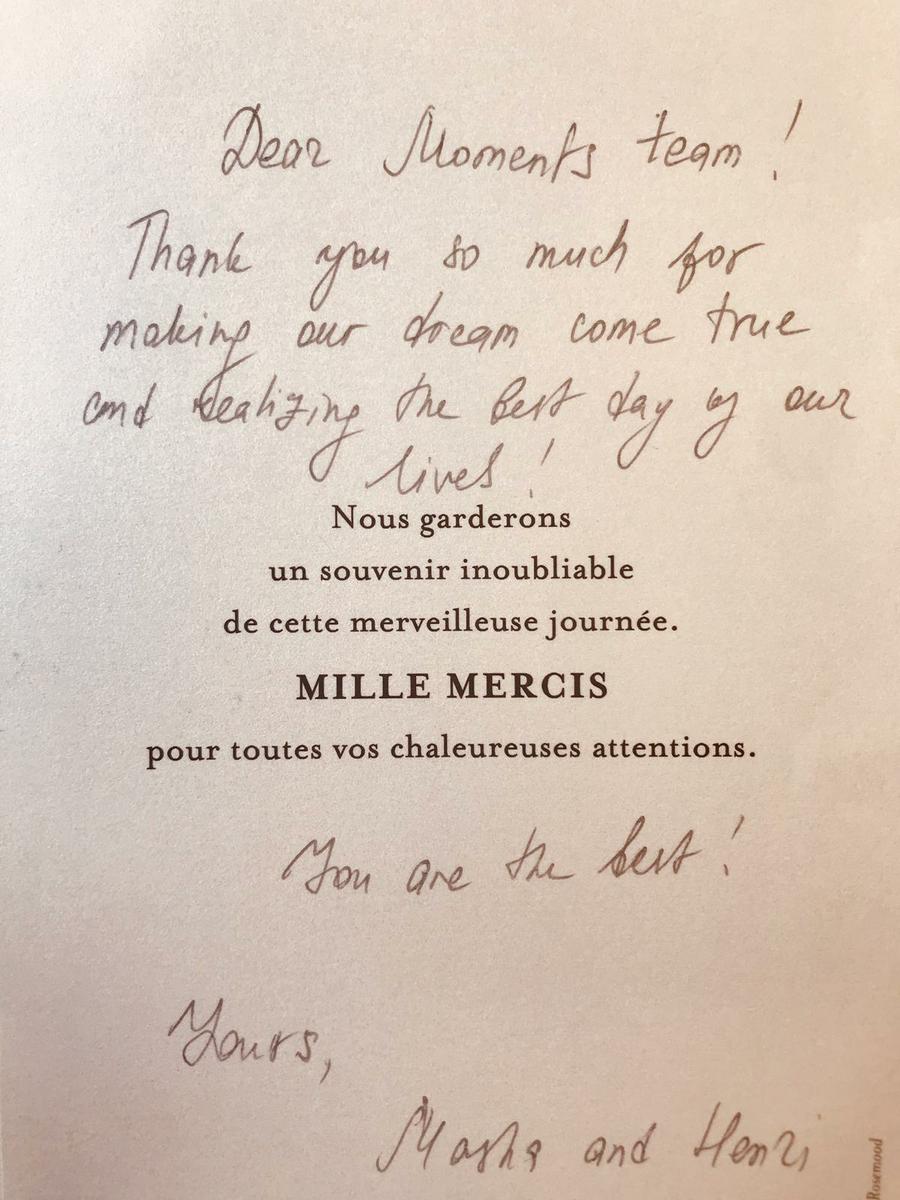 Dear Moments team!
Thank you so much for
making our dream come true
and realizing the best day of our
lives!
Nous garderons
un souvenir inoubliable
de cette merveilleuse journée.
MILLE MERCIS
pour toutes vos chaleureuses attentions.
You are the best!
Yours,
Masha and Henri
Rosemood